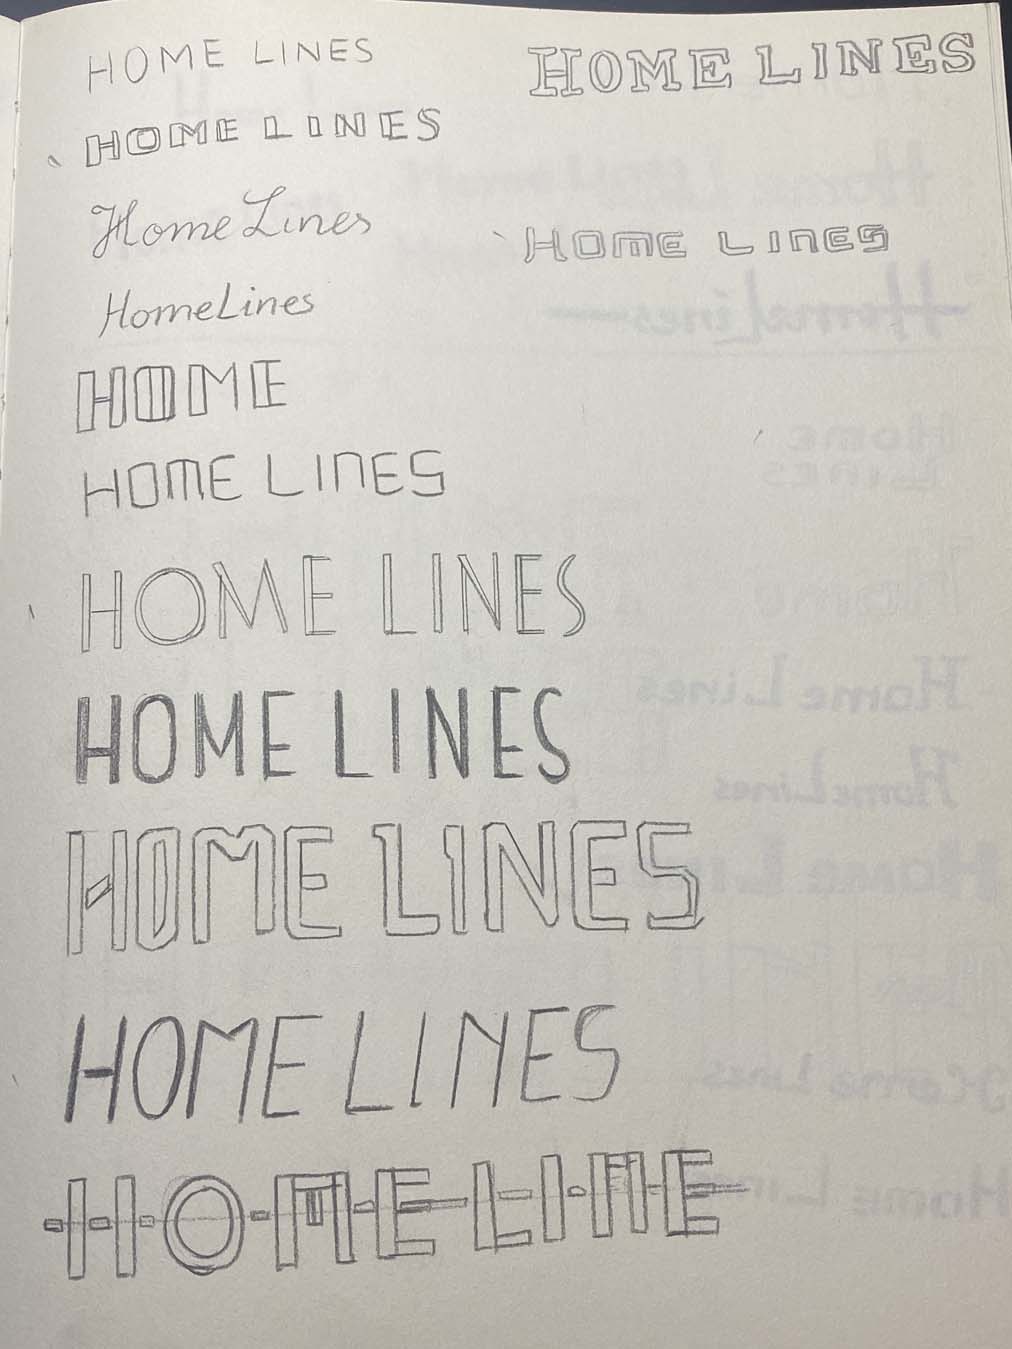 HOME LINES
HOME LINES
HOME LINES
Home Lines
HOME LINES
HomeLines
HOME
HOME LINES
HOME LINES
HOME LINES
HOME LINES
HOME LINES
HOME LINE